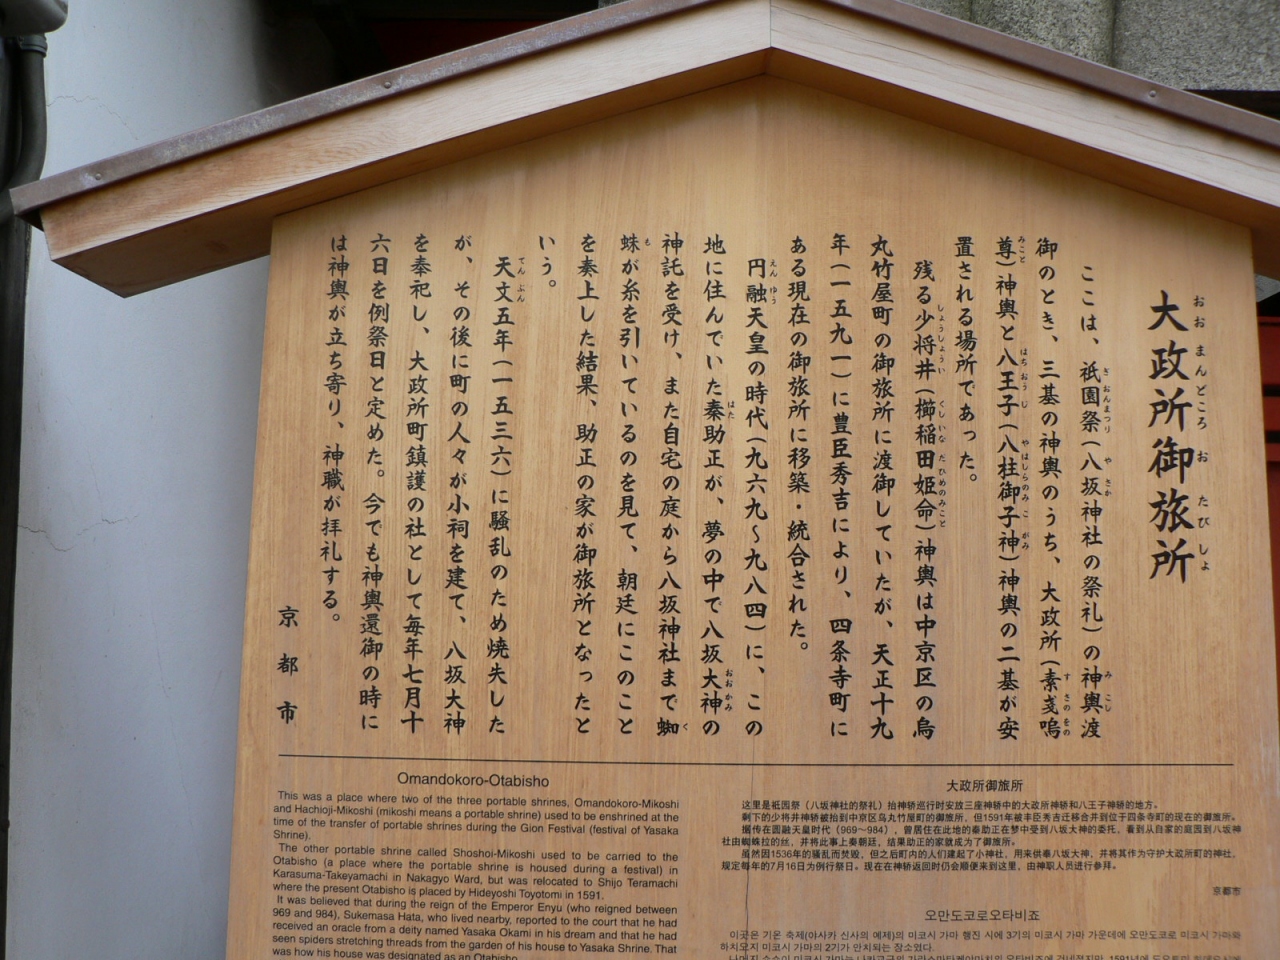 大政所御旅所
おおまんどころ おたびしょ
ここは、祇園祭(八坂神社の祭礼)の神輿渡
御のとき、三基の神輿のうち、大政所(素戔嗚
尊)神輿と八王子(八柱御子神)神輿の二基が安
置される場所であった。
残る少将井(櫛稲田姫命)神輿は中京区の烏
丸竹屋町の御旅所に渡御していたが、天正十九
年(一五九一)に豊臣秀吉により、四条寺町に
ある現在の御旅所に移築・統合された。
円融天皇の時代(九六九〜九八四)に、この
地に住んでいた秦助正が、夢の中で八坂大神の
神託を受け、また自宅の庭から八坂神社まで蜘
蛛が糸を引いているのを見て、朝廷にこのこと
を奏上した結果、助正の家が御旅所となったと
いう。
天文五年(一五三六)に騒乱のため焼失した
が、その後に町の人々が小祠を建て、八坂大神
を奉祀し、大政所町鎮護の社として毎年七月十
六日を例祭日と定めた。今でも神輿還御の時に
は神輿が立ち寄り、神職が拝礼する。
京都市
Omandokoro-Otabisho
This was a place where two of the three portable shrines, Omandokoro-Mikoshi
and Hachioji-Mikoshi (mikoshi means a portable shrine) used to be enshrined at the
time of the transfer of portable shrines during the Gion Festival (festival of Yasaka
Shrine).
The other portable shrine called Shoshoi-Mikoshi used to be carried to the
Otabisho (a place where the portable shrine is housed during a festival) in
Karasuma-Takeyamachi in Nakagyo Ward, but was relocated to Shijo Teramachi
where the present Otabisho is placed by Hideyoshi Toyotomi in 1591.
It was believed that during the reign of the Emperor Enyu (who reigned between
969 and 984), Sukemasa Hata, who lived nearby, reported to the court that he had
received an oracle from a deity named Yasaka Okami in his dream and that he had
seen spiders stretching threads from the garden of his house to Yasaka Shrine. That
was how his house was designated as an Otabisho.
大政所御旅所
这里是祗园祭（八坂神社的祭礼）抬神轿巡行时安放三座神轿中的大政所神轿和八王子神轿的地方。
剩下的少将井神轿被抬到中京区乌丸竹屋町的御旅所，但1591年被丰臣秀吉迁移合并到位于四条寺町的现在的御旅所。
据传在圆融天皇时代（969～984），曾居住在此地的秦助正在梦中受到八坂大神的委托，看到从自家的庭园到八坂神
社由蜘蛛拉的丝，并将此事上奏朝廷，结果助正的家就成为了御旅所。
虽然因1536年的骚乱而焚毁，但之后町内的人们建起了小神社，用来供奉八坂大神，并将其作为守护大政所町的神社，
规定每年的7月16日为例行祭日。现在在神轿返回时仍会顺便来到这里，由神职人员进行参拜。
京都市
오만도코로오타비쇼
이곳은 기온 축제(야사카 신사의 예제)의 미코시 가마 행진 시에 3기의 미코시 가마 가운데에 오만도코로 미코시 가마와
하치오지 미코시 가마의 2기가 안치되는 장소였다.